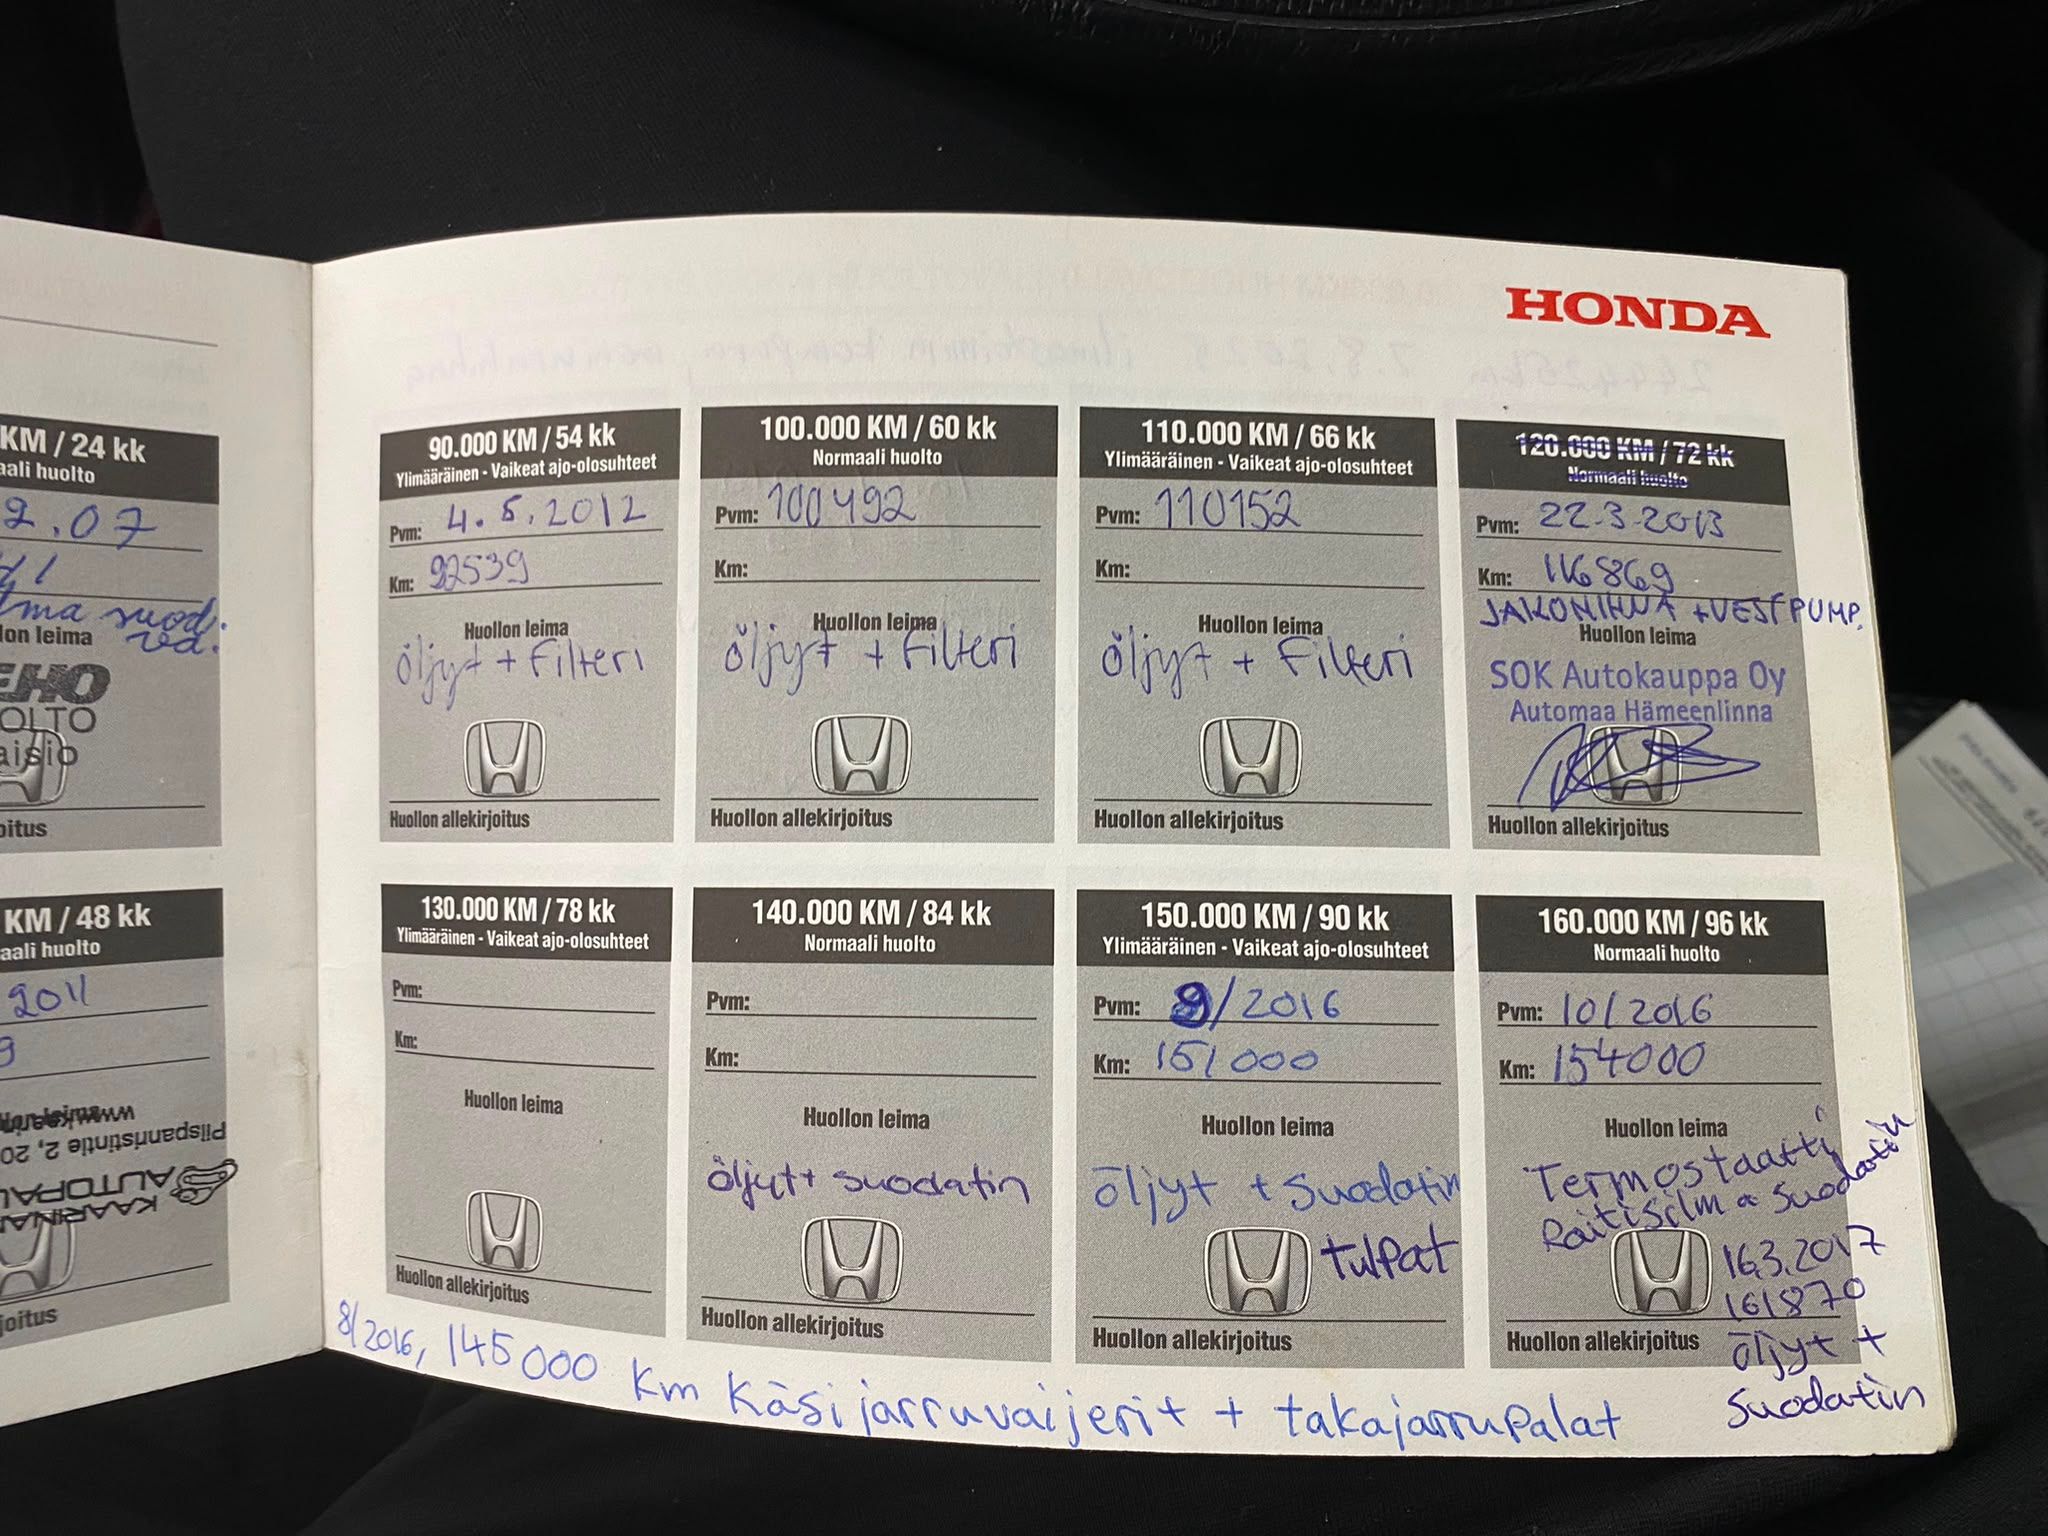 HONDA
KM / 24 kk
aali huolto
2.07
suod.
lon leima
va.
EHO
OLTO
aisio
oitus
KM / 48 kk
aali huolto
2011
9
Piispanristintie 2, 20
AUTOPAL
KAARINAN
joitus
90.000 KM / 54 kk
Ylimääräinen - Vaikeat ajo-olosuhteet
Pvm: 4.5.2012
Km: 92539
Huollon leima
öljyt + Filteri
Huollon allekirjoitus
100.000 KM / 60 kk
Normaali huolto
Pvm: 100492
Km:
Huollon leima
öljyt + Filteri
Huollon allekirjoitus
110.000 KM / 66 kk
Ylimääräinen - Vaikeat ajo-olosuhteet
Pvm: 110152
Km:
Huollon leima
öljyt + Filteri
Huollon allekirjoitus
120.000 KM / 72 kk
Normaali huolto
Pvm: 22.3.2013
Km: 116869
JAKOHIHNA + VESIPUMP.
Huollon leima
SOK Autokauppa Oy
Automaa Hämeenlinna
Huollon allekirjoitus
130.000 KM / 78 kk
Ylimääräinen - Vaikeat ajo-olosuhteet
Pvm:
Km:
Huollon leima
Huollon allekirjoitus
140.000 KM / 84 kk
Normaali huolto
Pvm:
Km:
Huollon leima
öljyt + suodatin
Huollon allekirjoitus
150.000 KM / 90 kk
Ylimääräinen - Vaikeat ajo-olosuhteet
Pvm: 9/2016
Km: 151000
Huollon leima
öljyt + suodatin
tulpat
Huollon allekirjoitus
160.000 KM / 96 kk
Normaali huolto
Pvm: 10/2016
Km: 154000
Huollon leima
Termostaatti
Raitisilma suodatin
16.3.2017
161870
Huollon allekirjoitus
öljyt +
suodatin
8/2016, 145000 km Käsijarruvaijerit + takajarrupalat